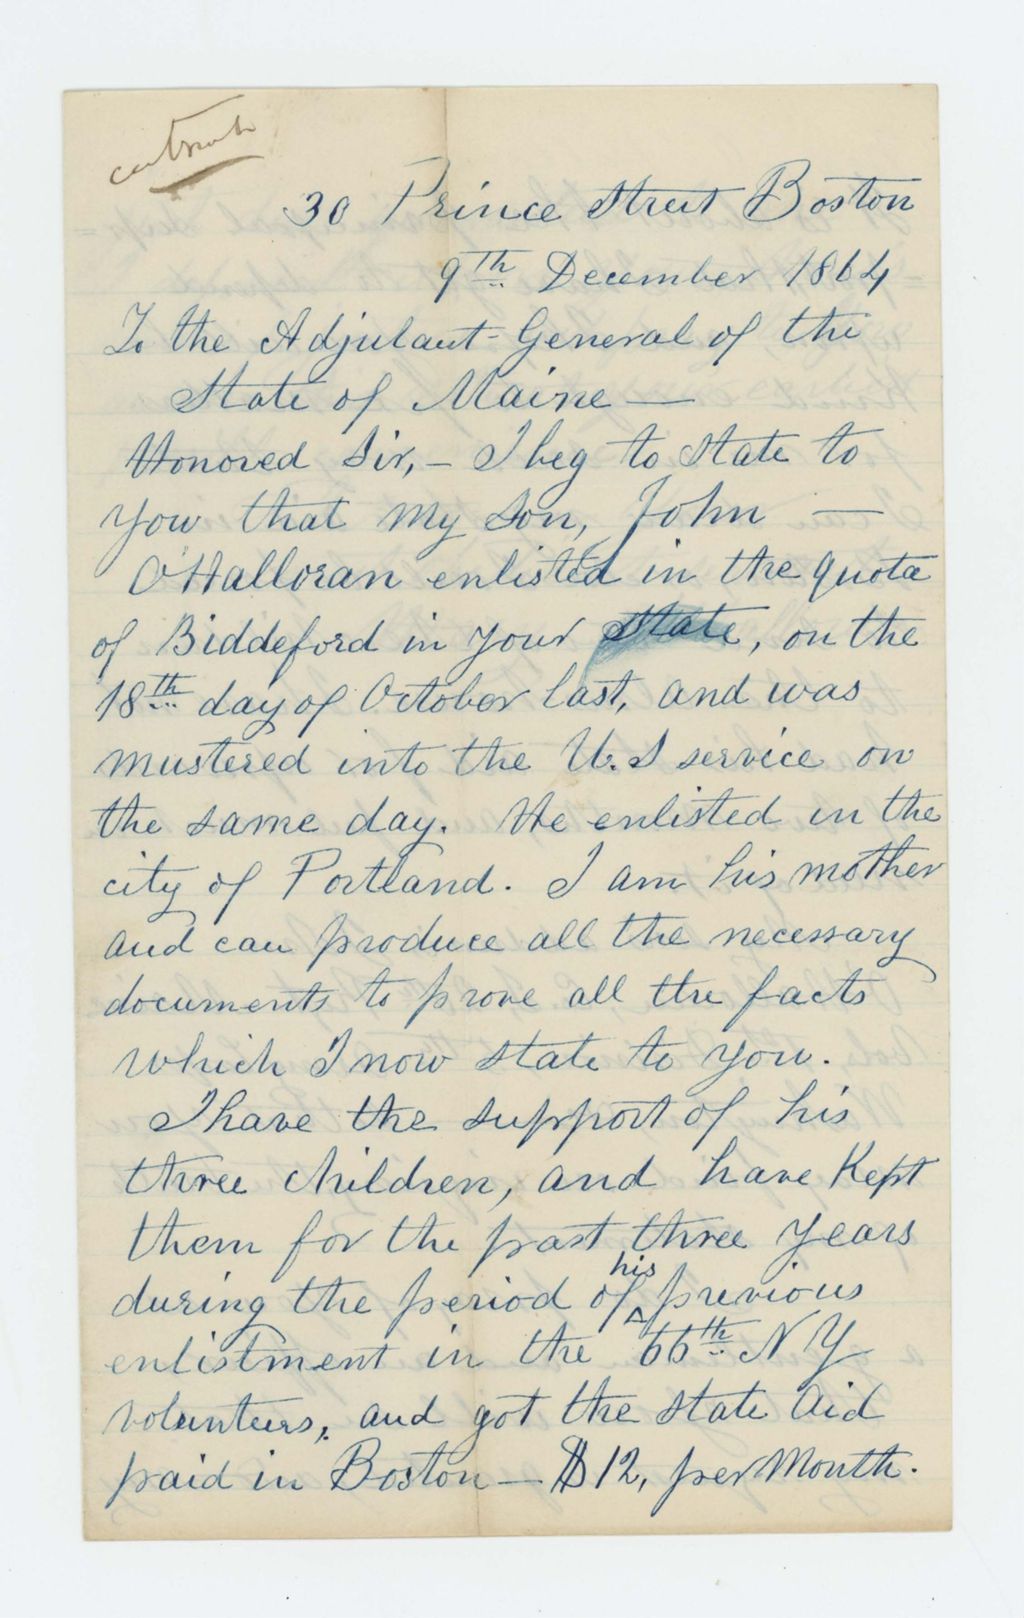 30 Prince Street Boston
9th December 1864
To the Adjutant-General of the
State of Maine —
Honored Sir, — I beg to state to
you that my son, John —
O'Halloran enlisted in the quota
of Biddeford in your State, on the
18th day of October last, and was
mustered into the U.S service on
the same day. He enlisted in the
city of Portland. I am his mother
and can produce all the necessary
documents to prove all the facts
which I now state to you.
I have the support of his
three children, and have Kept
them for the past three years
during the period of his previous
enlistment in the 66th N Y
volunteers, and got the state aid
paid in Boston — $12, per Month.